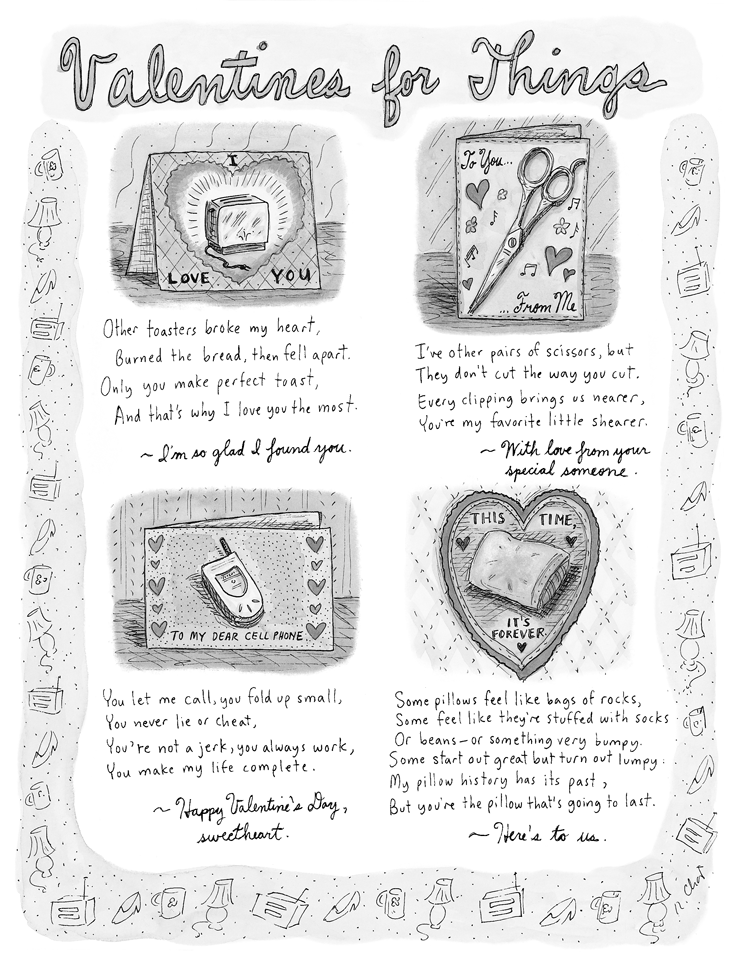 Valentines for Things
I
LOVE YOU
Other toasters broke my heart,
Burned the bread, then fell apart.
Only you make perfect toast,
And that's why I love you the most.
~ I'm so glad I found you.
To You...
...From Me
I've other pairs of scissors, but
They don't cut the way you cut.
Every clipping brings us nearer,
You're my favorite little shearer.
~ With love from your
special someone.
TO MY DEAR CELL PHONE
You let me call, you fold up small,
You never lie or cheat,
You're not a jerk, you always work,
You make my life complete.
~ Happy Valentine's Day,
sweetheart.
THIS TIME,
IT'S
FOREVER.
Some pillows feel like bags of rocks,
Some feel like they're stuffed with socks
Or beans—or something very bumpy.
Some start out great but turn out lumpy:
My pillow history has its past,
But you're the pillow that's going to last.
~ Here's to us.
R. Chast